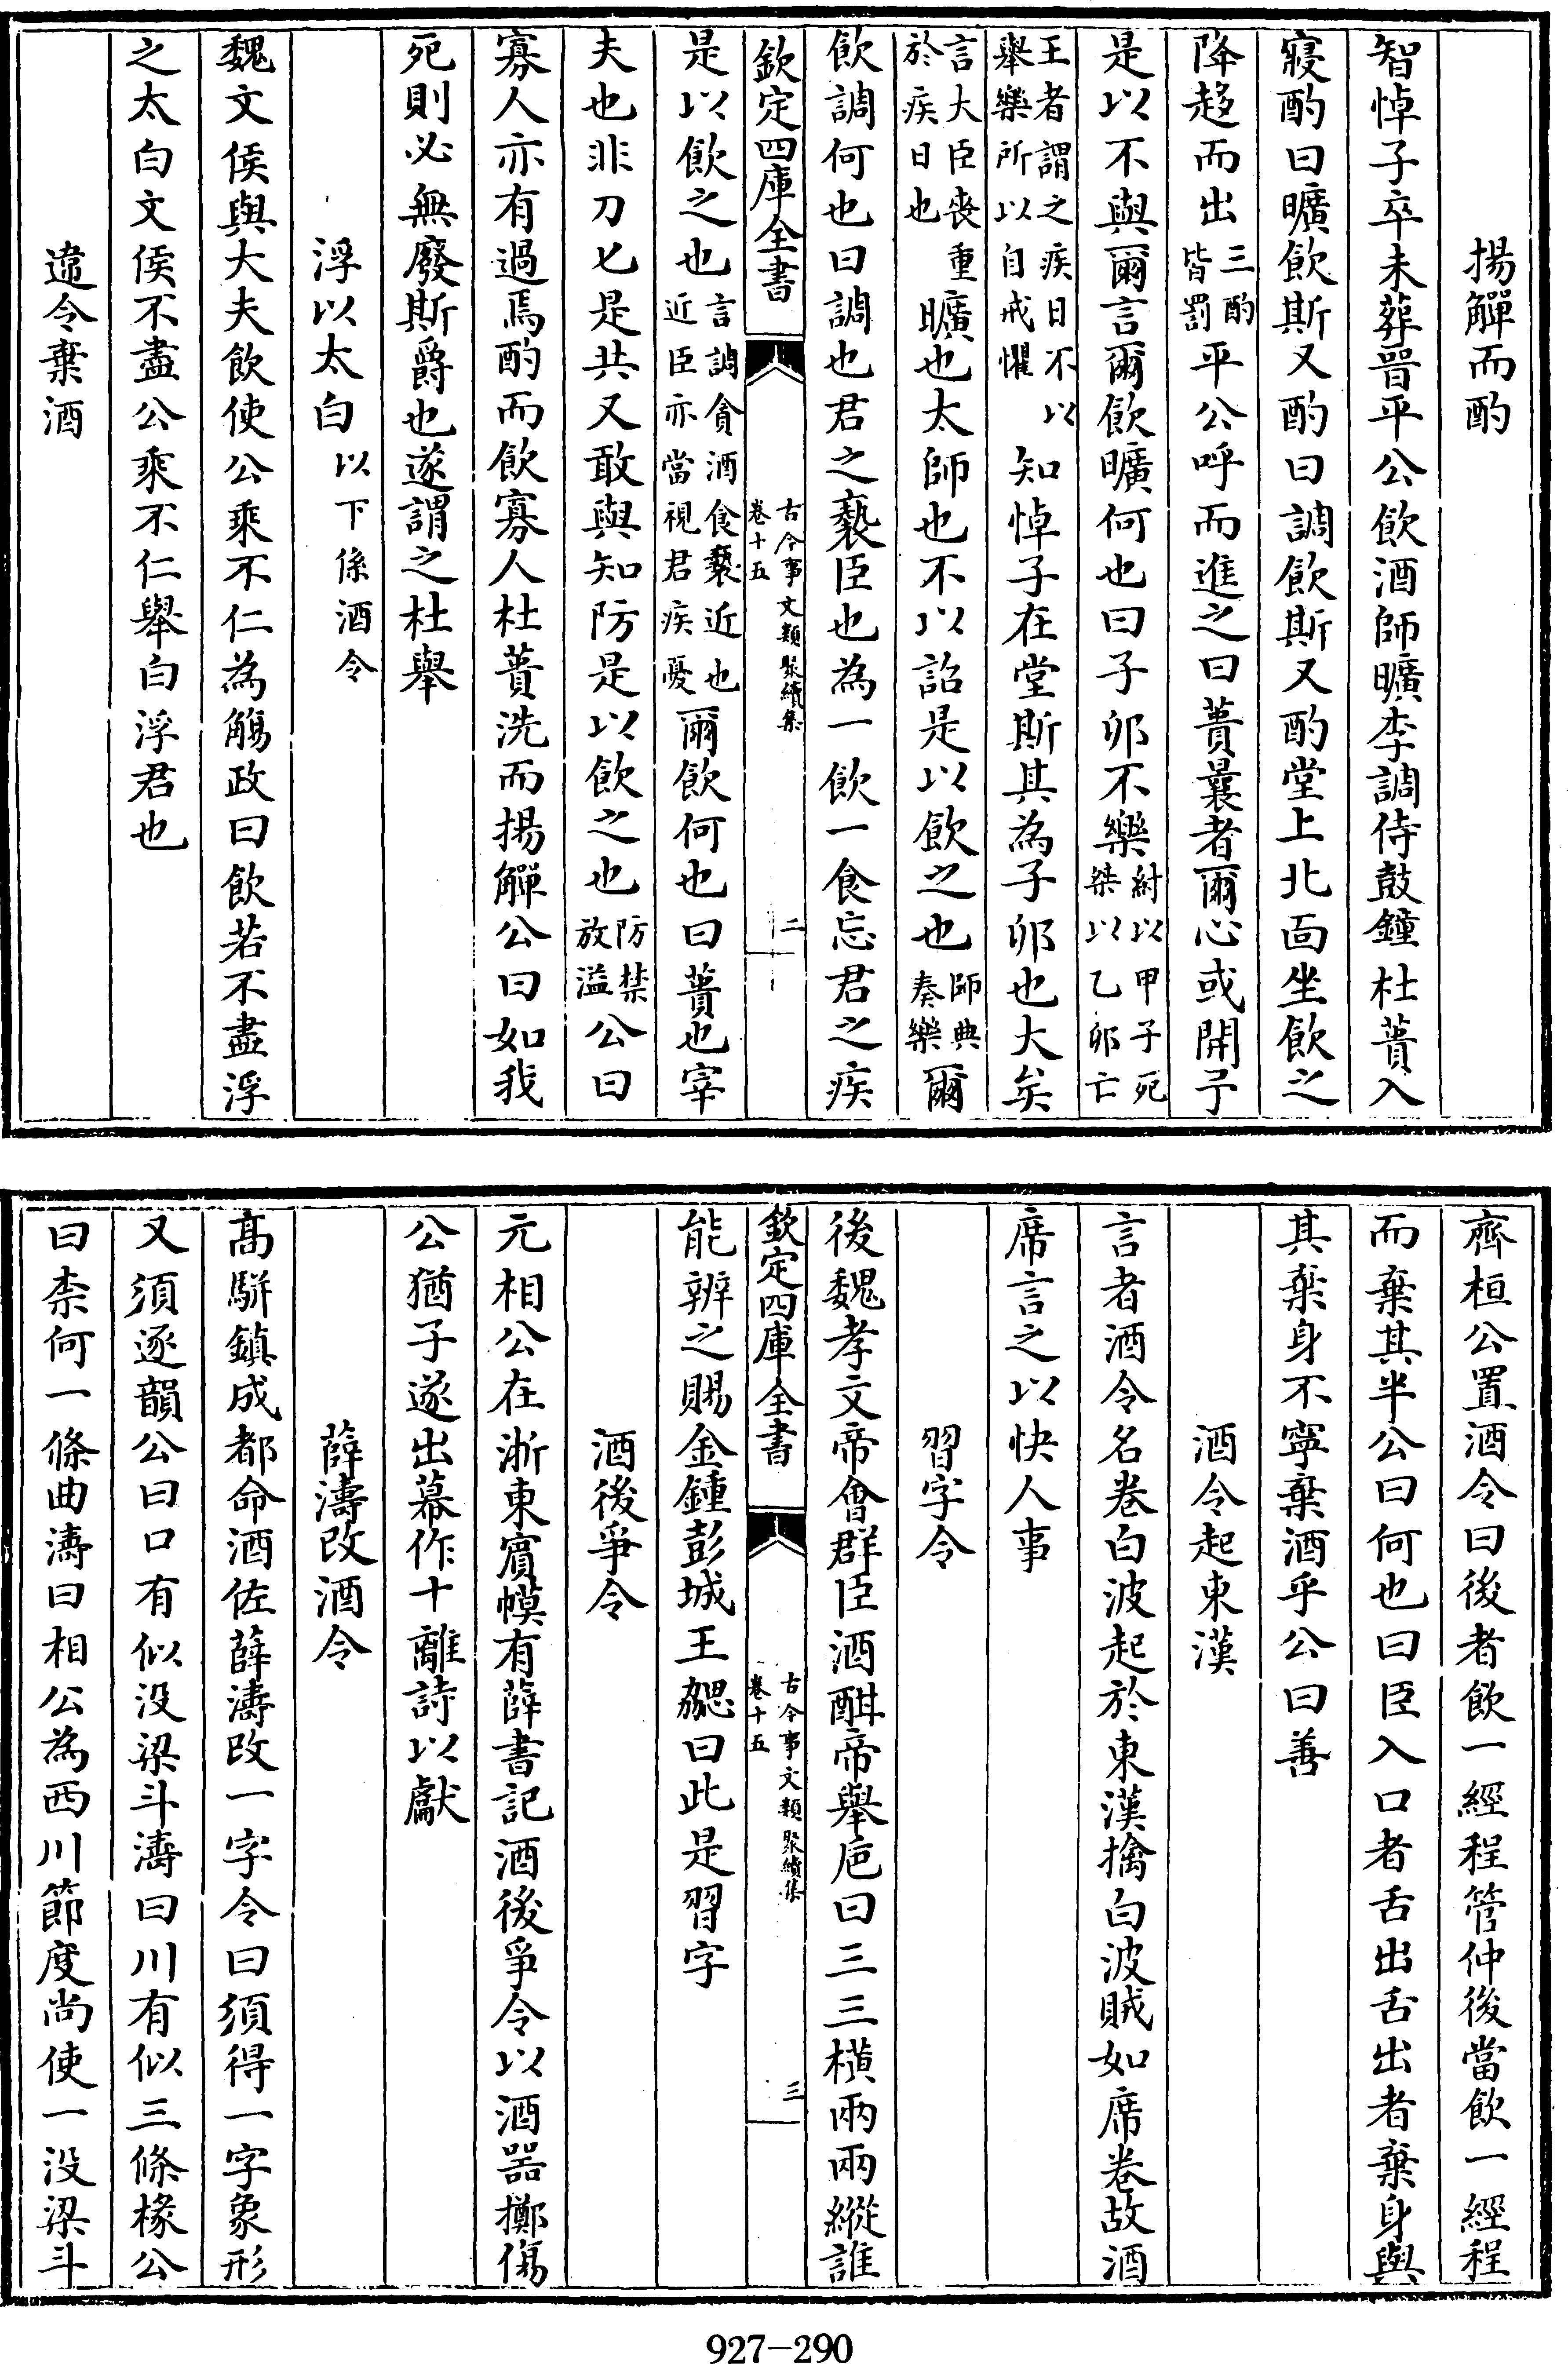 揚觶而酌
智悼子卒未葬晉平公飲酒師曠李調侍鼓鐘杜蕢入
寢酌曰曠飲斯又酌曰調飲斯又酌堂上北面坐飲之
降趍而出三酌皆罰平公呼而進之曰蕢曩者爾心或開予
是以不與爾言爾飲曠何也曰子卯不樂紂以甲子死桀以乙卯亡
王者謂之疾日不以舉樂所以自戒懼知悼子在堂斯其為子卯也大矣
言大臣喪重於疾日也曠也太師也不以詔是以飲之也師典奏樂爾
飲調何也曰調也君之褻臣也為一飲一食忘君之疾
欽定四庫全書 古今事文類聚續集卷十五 二
是以飲之也言調貪酒食褻近也近臣亦當視君疾憂爾飲何也曰蕢也宰
夫也非刀匕是共又敢與知防是以飲之也防禁放溢公曰
寡人亦有過焉酌而飲寡人杜蕢洗而揚觶公曰如我
死則必無廢斯爵也遂謂之杜舉
浮以太白以下係酒令
魏文侯與大夫飲使公乘不仁為觴政曰飲若不盡浮
之太白文侯不盡公乘不仁舉白浮君也
違令棄酒
齊桓公置酒令曰後者飲一經程管仲後當飲一經程
而棄其半公曰何也曰臣入口者舌出舌出者棄身與
其棄身不寧棄酒乎公曰善
酒令起東漢
言者酒令名卷白波起於東漢擒白波賊如席卷故酒
席言之以快人事
習字令
後魏孝文帝會群臣酒酣帝舉巵曰三三横兩兩縱誰
欽定四庫全書 古今事文類聚續集卷十五 三
能辨之賜金鍾彭城王勰曰此是習字
酒後爭令
元相公在浙東賔幙有薛書記酒後爭令以酒器擲傷
公猶子遂出幕作十離詩以獻
薛濤改酒令
髙駢鎮成都命酒佐薛濤改一字令曰須得一字象形
又須逐韻公曰口有似没梁斗濤曰川有似三條椽公
曰柰何一條曲濤曰相公為西川節度尚使一没梁斗
927-290